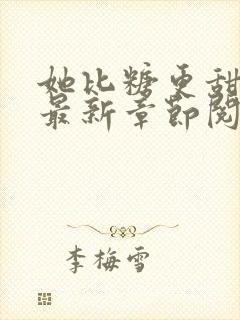 她比糖更甜
最新章节阅
李梅雪